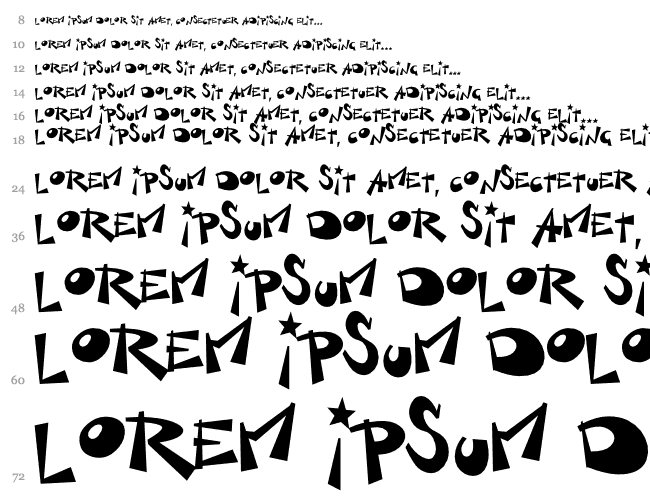 8 LOREM iPSuM DOLOR SiT AMET, cONSEcTETuER ADiPiSciNG ELiT...
10 LOREM iPSuM DOLOR SiT AMET, cONSEcTETuER ADiPiSciNG ELiT...
12 LOREM iPSuM DOLOR SiT AMET, cONSEcTETuER ADiPiSciNG ELiT...
14 LOREM iPSuM DOLOR SiT AMET, cONSEcTETuER ADiPiSciNG ELiT...
16 LOREM iPSuM DOLOR SiT AMET, cONSEcTETuER ADiPiSciNG ELiT...
18 LOREM iPSuM DOLOR SiT AMET, cONSEcTETuER ADiPiSciNG ELi
24 LOREM iPSuM DOLOR SiT AMET, cONSEcTETuER
36 LOREM iPSuM DOLOR SiT AMET,
48 LOREM iPSuM DOLOR Si
60 LOREM iPSuM DOLO
72 LOREM iPSuM D